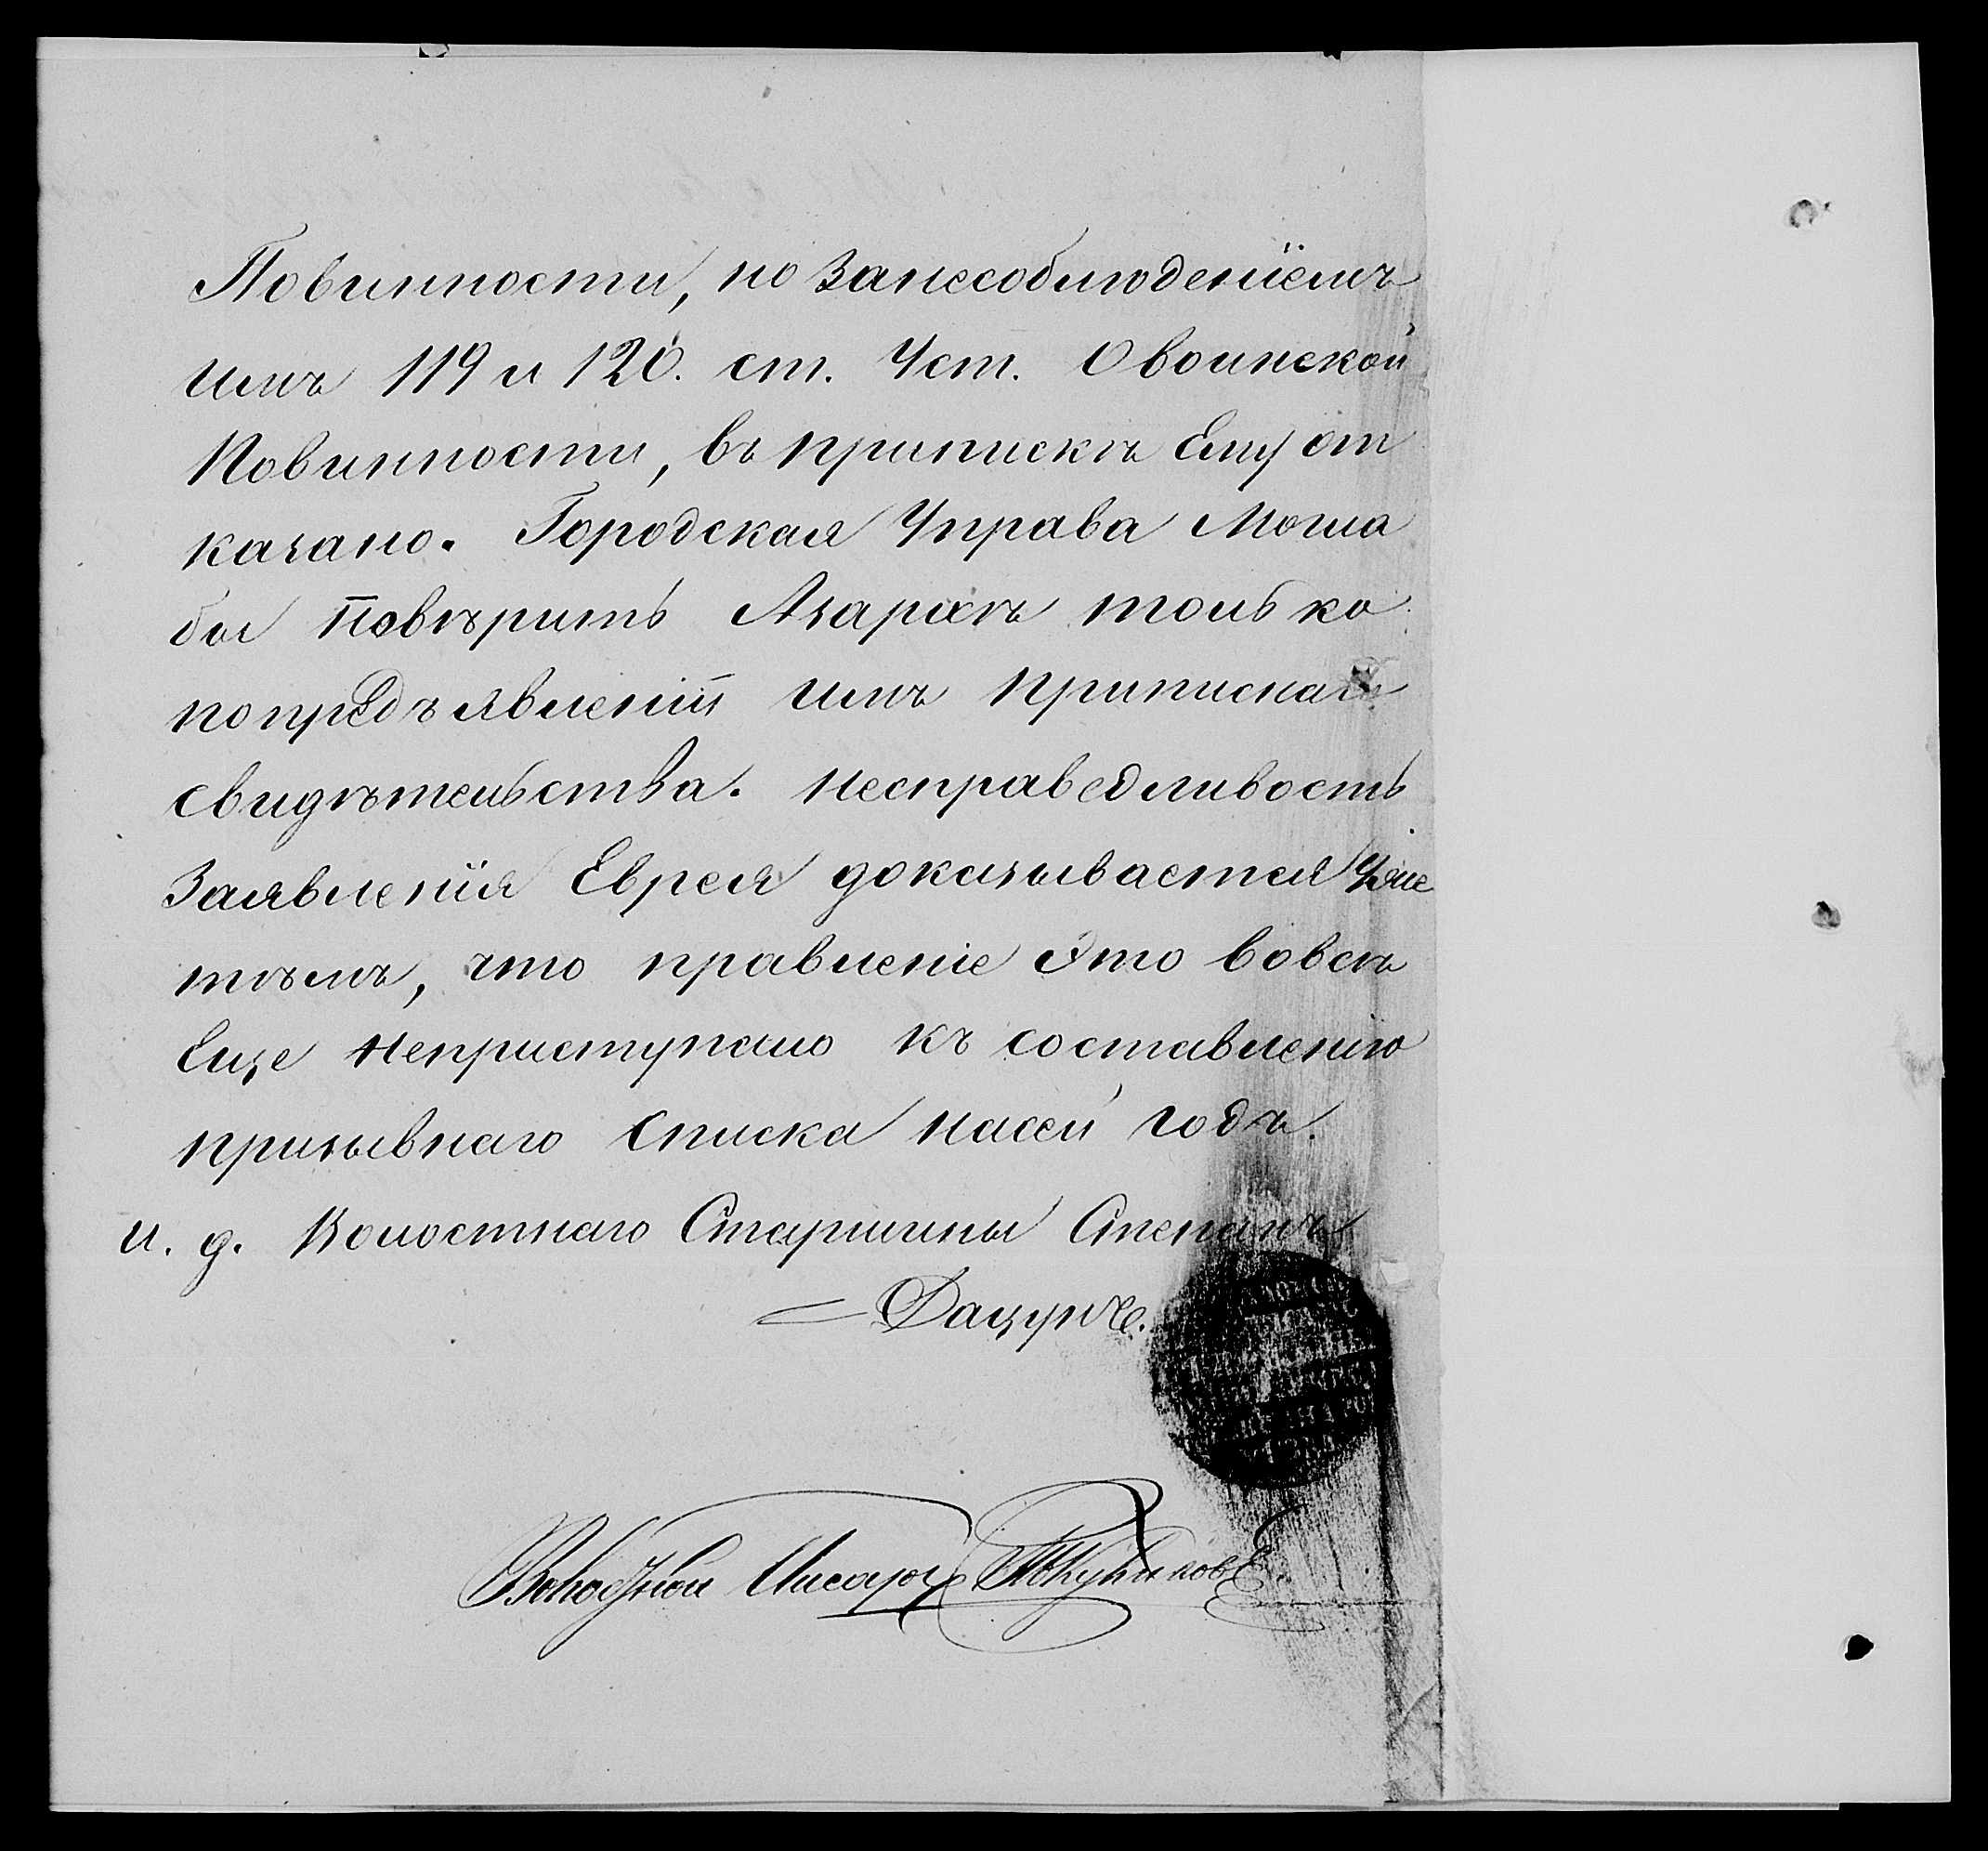 Повинности, но Занесоблюденіемъ
имъ 119 и 120. ст. Уст. О воинской
Повинности, въ припискѣ Ему от
казано. Городская Управа Могла
бы повѣрить Азархъ только
по предъявленіи имъ приписнаго
свидѣтельства. несправедливость
Заявленія Еврея доказывается Уже
тѣмъ, что правленіе Это вовсѣ
Еще неприступало къ составленію
призывнаго Списка насей годъ.
И. д. Волостнаго Старшины Степанъ
Дацунъ.
Волостной Писарь